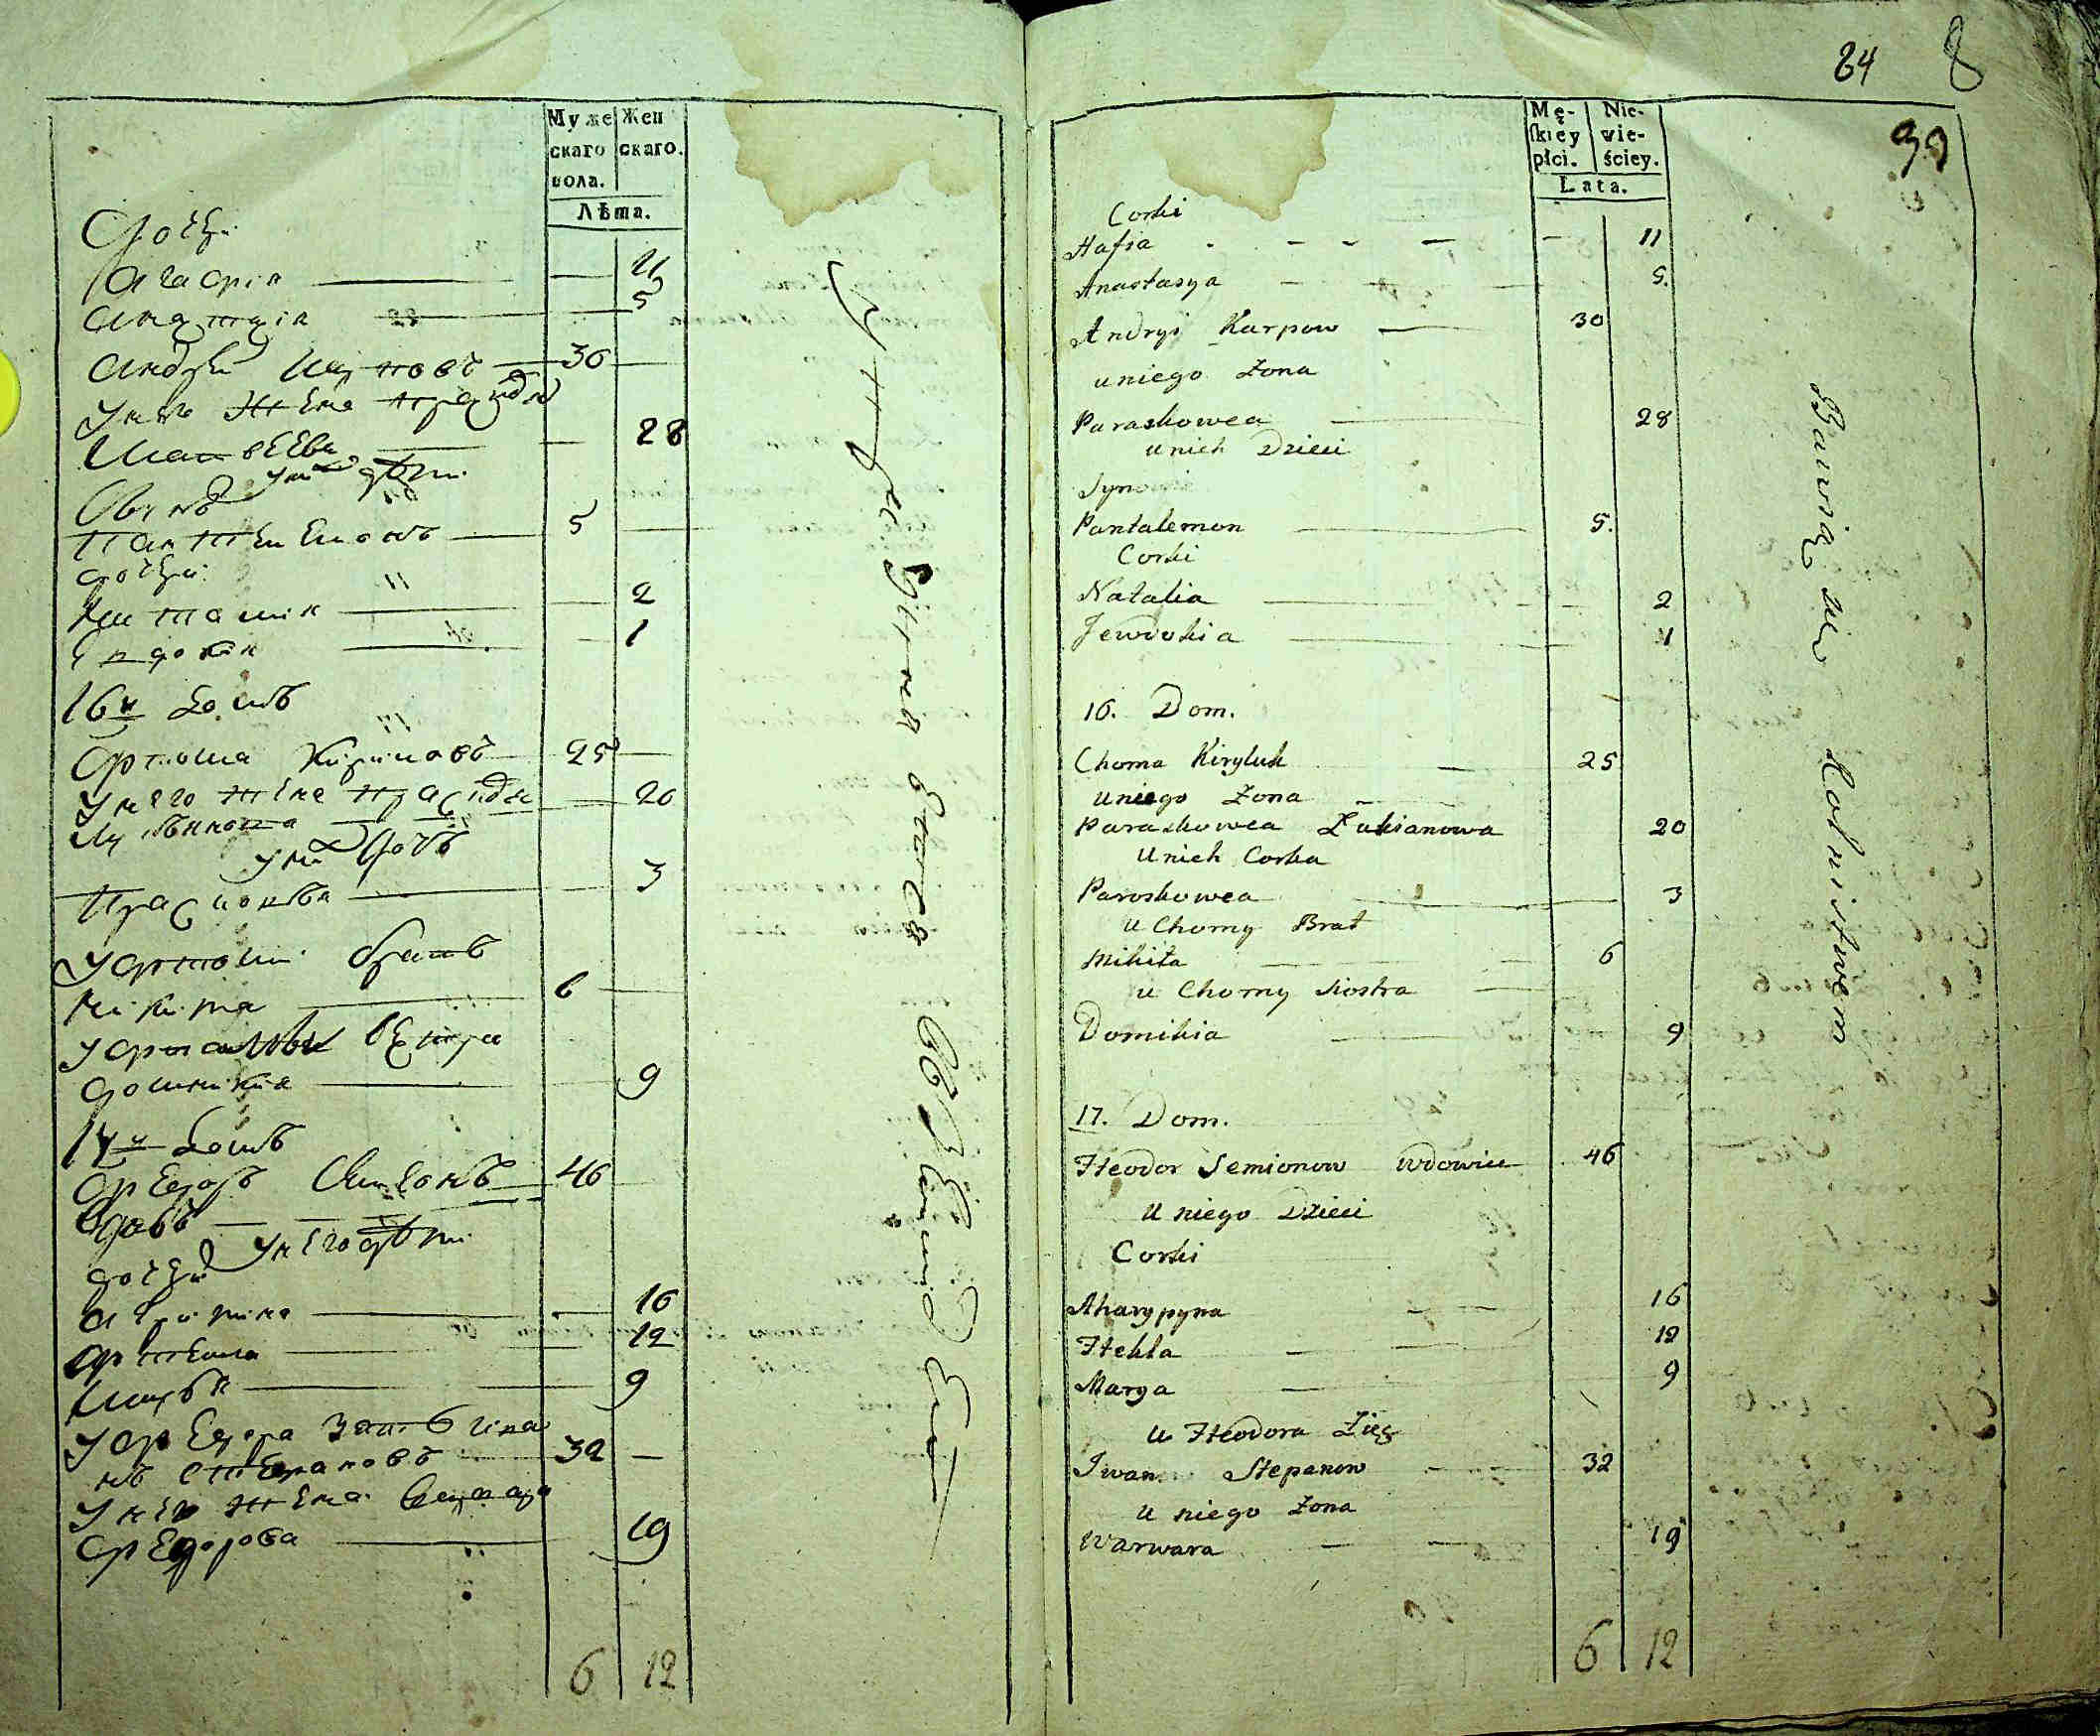 Муже Жен
скаго скаго.
пола.
Лѣта.
дочери
5
Андрей Карповъ 30
У него жена Параскове
28
У них дѣти
Пантелемонъ 5
дочери
Наталия 2
Евдокия 1
16й домъ
Фома Кириловъ 25
У него жена 20
У них дочь
Прасковья 3
У Фомы братъ
Никита 6
У Фомы сестра
Домникия 9
17й домъ
Федоръ Семеновъ 46
Вдовъ
У него дѣти
дочери
16
Фекла 12
Марья 9
У Федора зять Ива
нъ Степановъ 32
У него жена Варвара
Федорова 19
6 12
84 8
99
Mę- Nie-
skiey wie-
płci. ściey.
Lata.
Corki
Hafia 11
Anastasya 5.
Andryi Karpow 30
u niego Żona
Paraskowea 28
u nich Dzieci
Synowie
Pantalemon 5.
Corki
Natalia 2
Jewdokia 1
16. Dom.
Choma Kiryluk 25
u niego Żona
Paraskowea Łukianowa 20
U nich Corka
Paroskowea 3
u Chomy Brat
Mikita 6
u Chomy siostra
Domikia 9
17. Dom.
Fteodor Semionow wdowiec 46
U niego Dzieci
Corki
Aharypyna 16
Ftekla 12
Marya 9
u Fteodora Zięć
Iwan Stepanow 32
u niego Żona
Warwara 19
6 12
Bawią się Rolnistwem